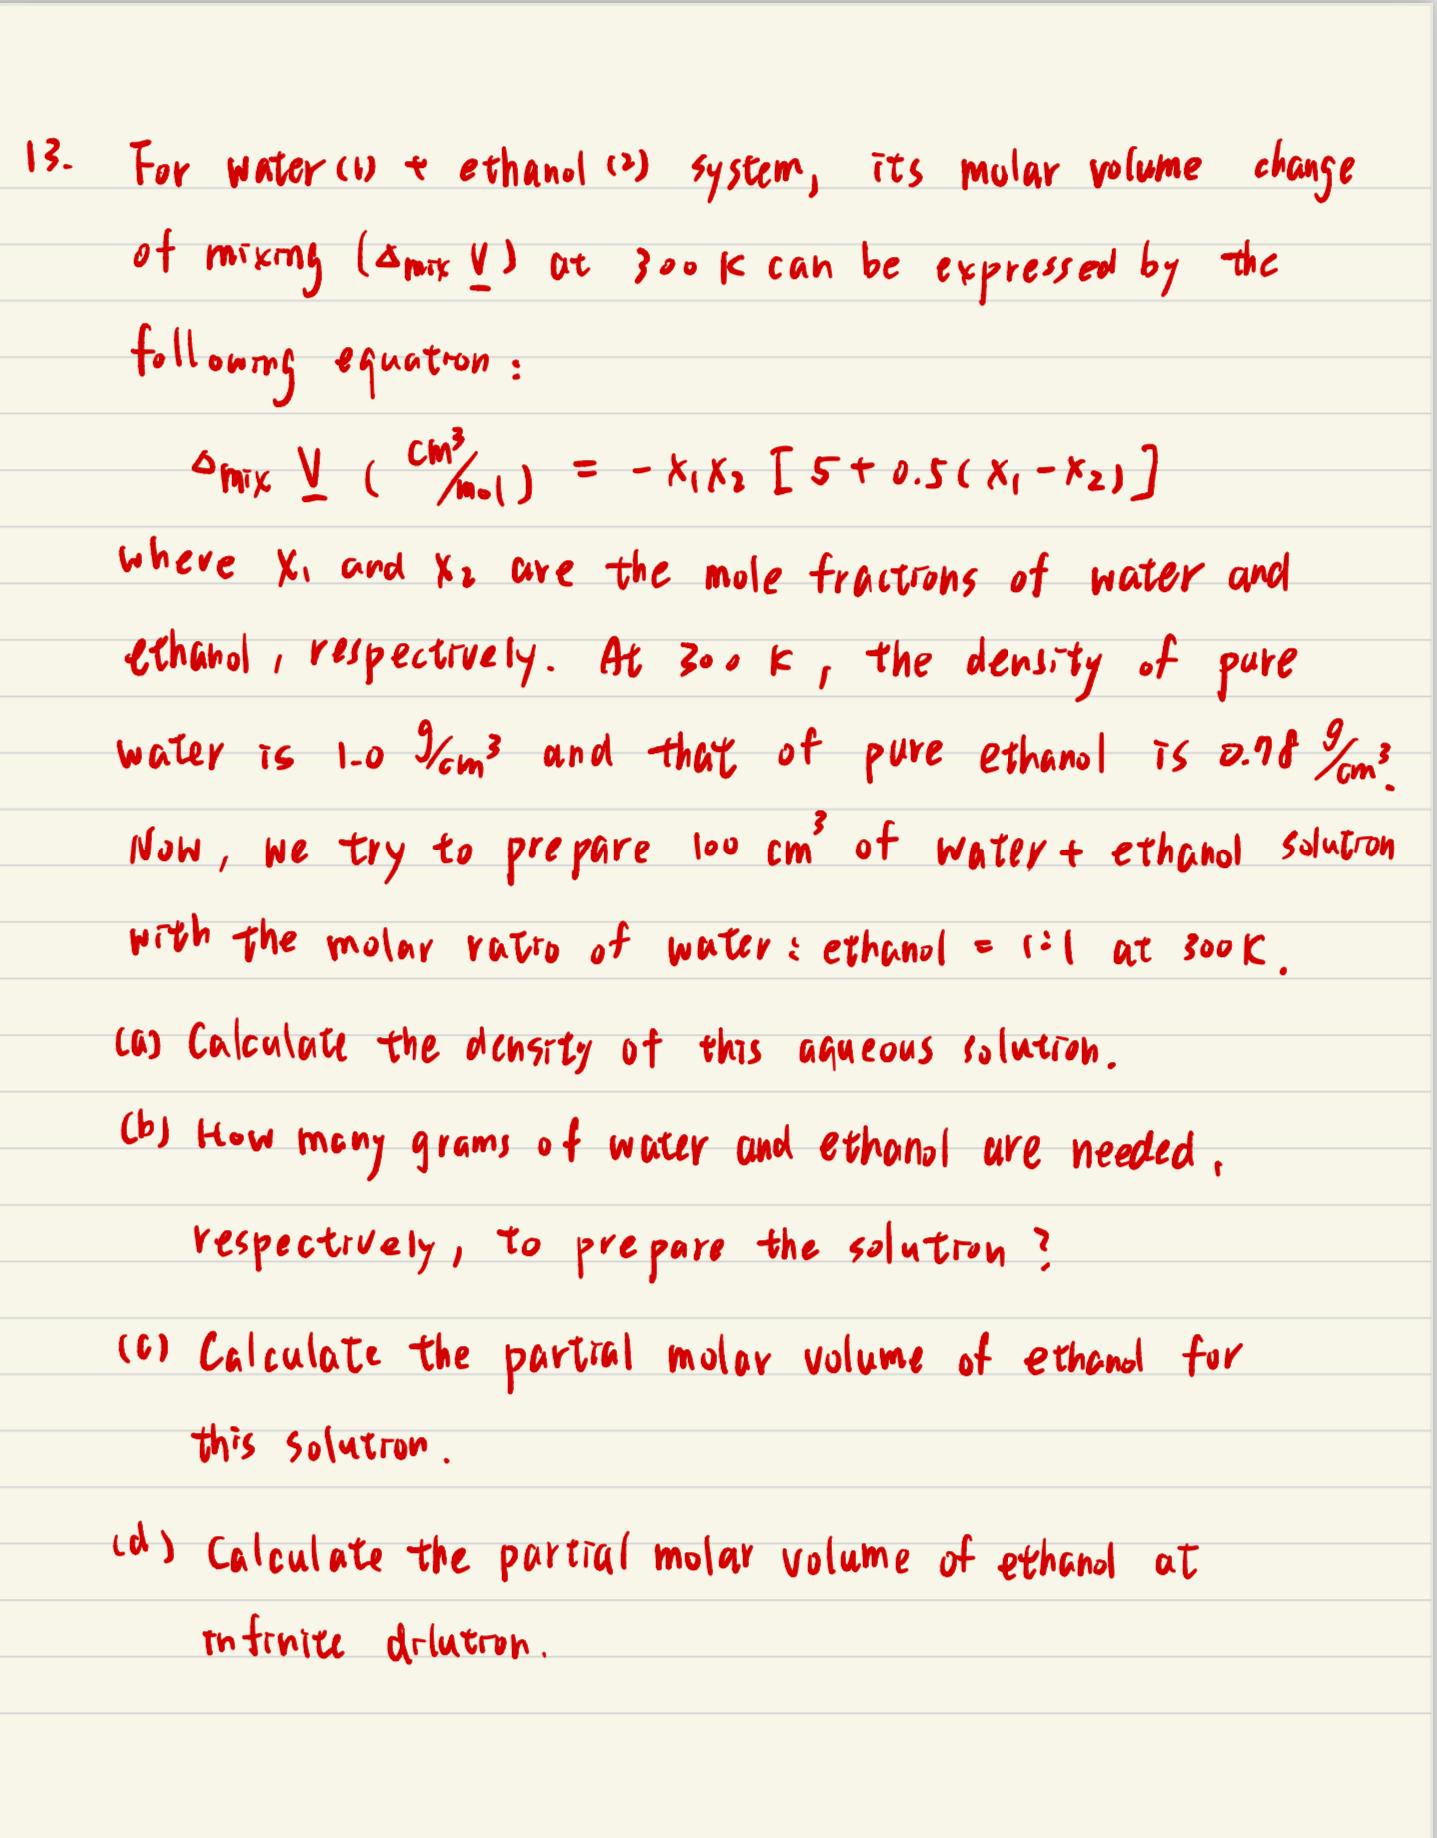 13. For water (1) + ethanol (2) system, its molar volume change
of mixing (Δmix V̲) at 300 K can be expressed by the
following equation :
Δmix V̲ ( cm³/mol ) = - x₁x₂ [ 5 + 0.5 ( x₁ - x₂ ) ]
where x₁ and x₂ are the mole fractions of water and
ethanol, respectively. At 300 K, the density of pure
water is 1.0 g/cm³ and that of pure ethanol is 0.78 g/cm³.
Now, we try to prepare 100 cm³ of water + ethanol solution
with the molar ratio of water : ethanol = 1:1 at 300 K.
(a) Calculate the density of this aqueous solution.
(b) How many grams of water and ethanol are needed,
respectively, to prepare the solution ?
(c) Calculate the partial molar volume of ethanol for
this solution.
(d) Calculate the partial molar volume of ethanol at
infinite dilution.